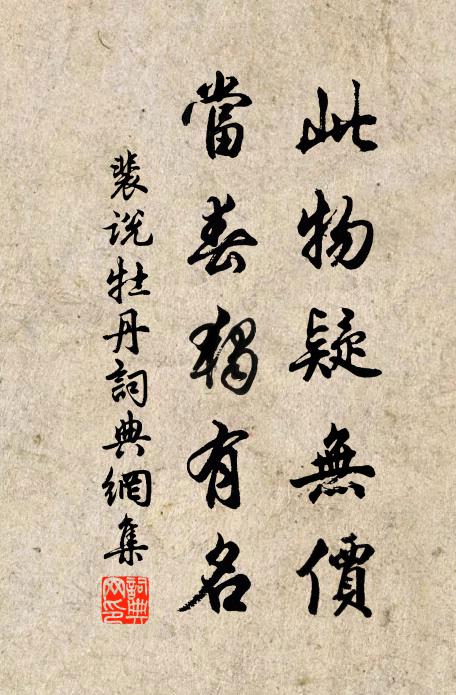 此物疑無價
當春獨有名
裴说牡丹詞典網集
詞典网印